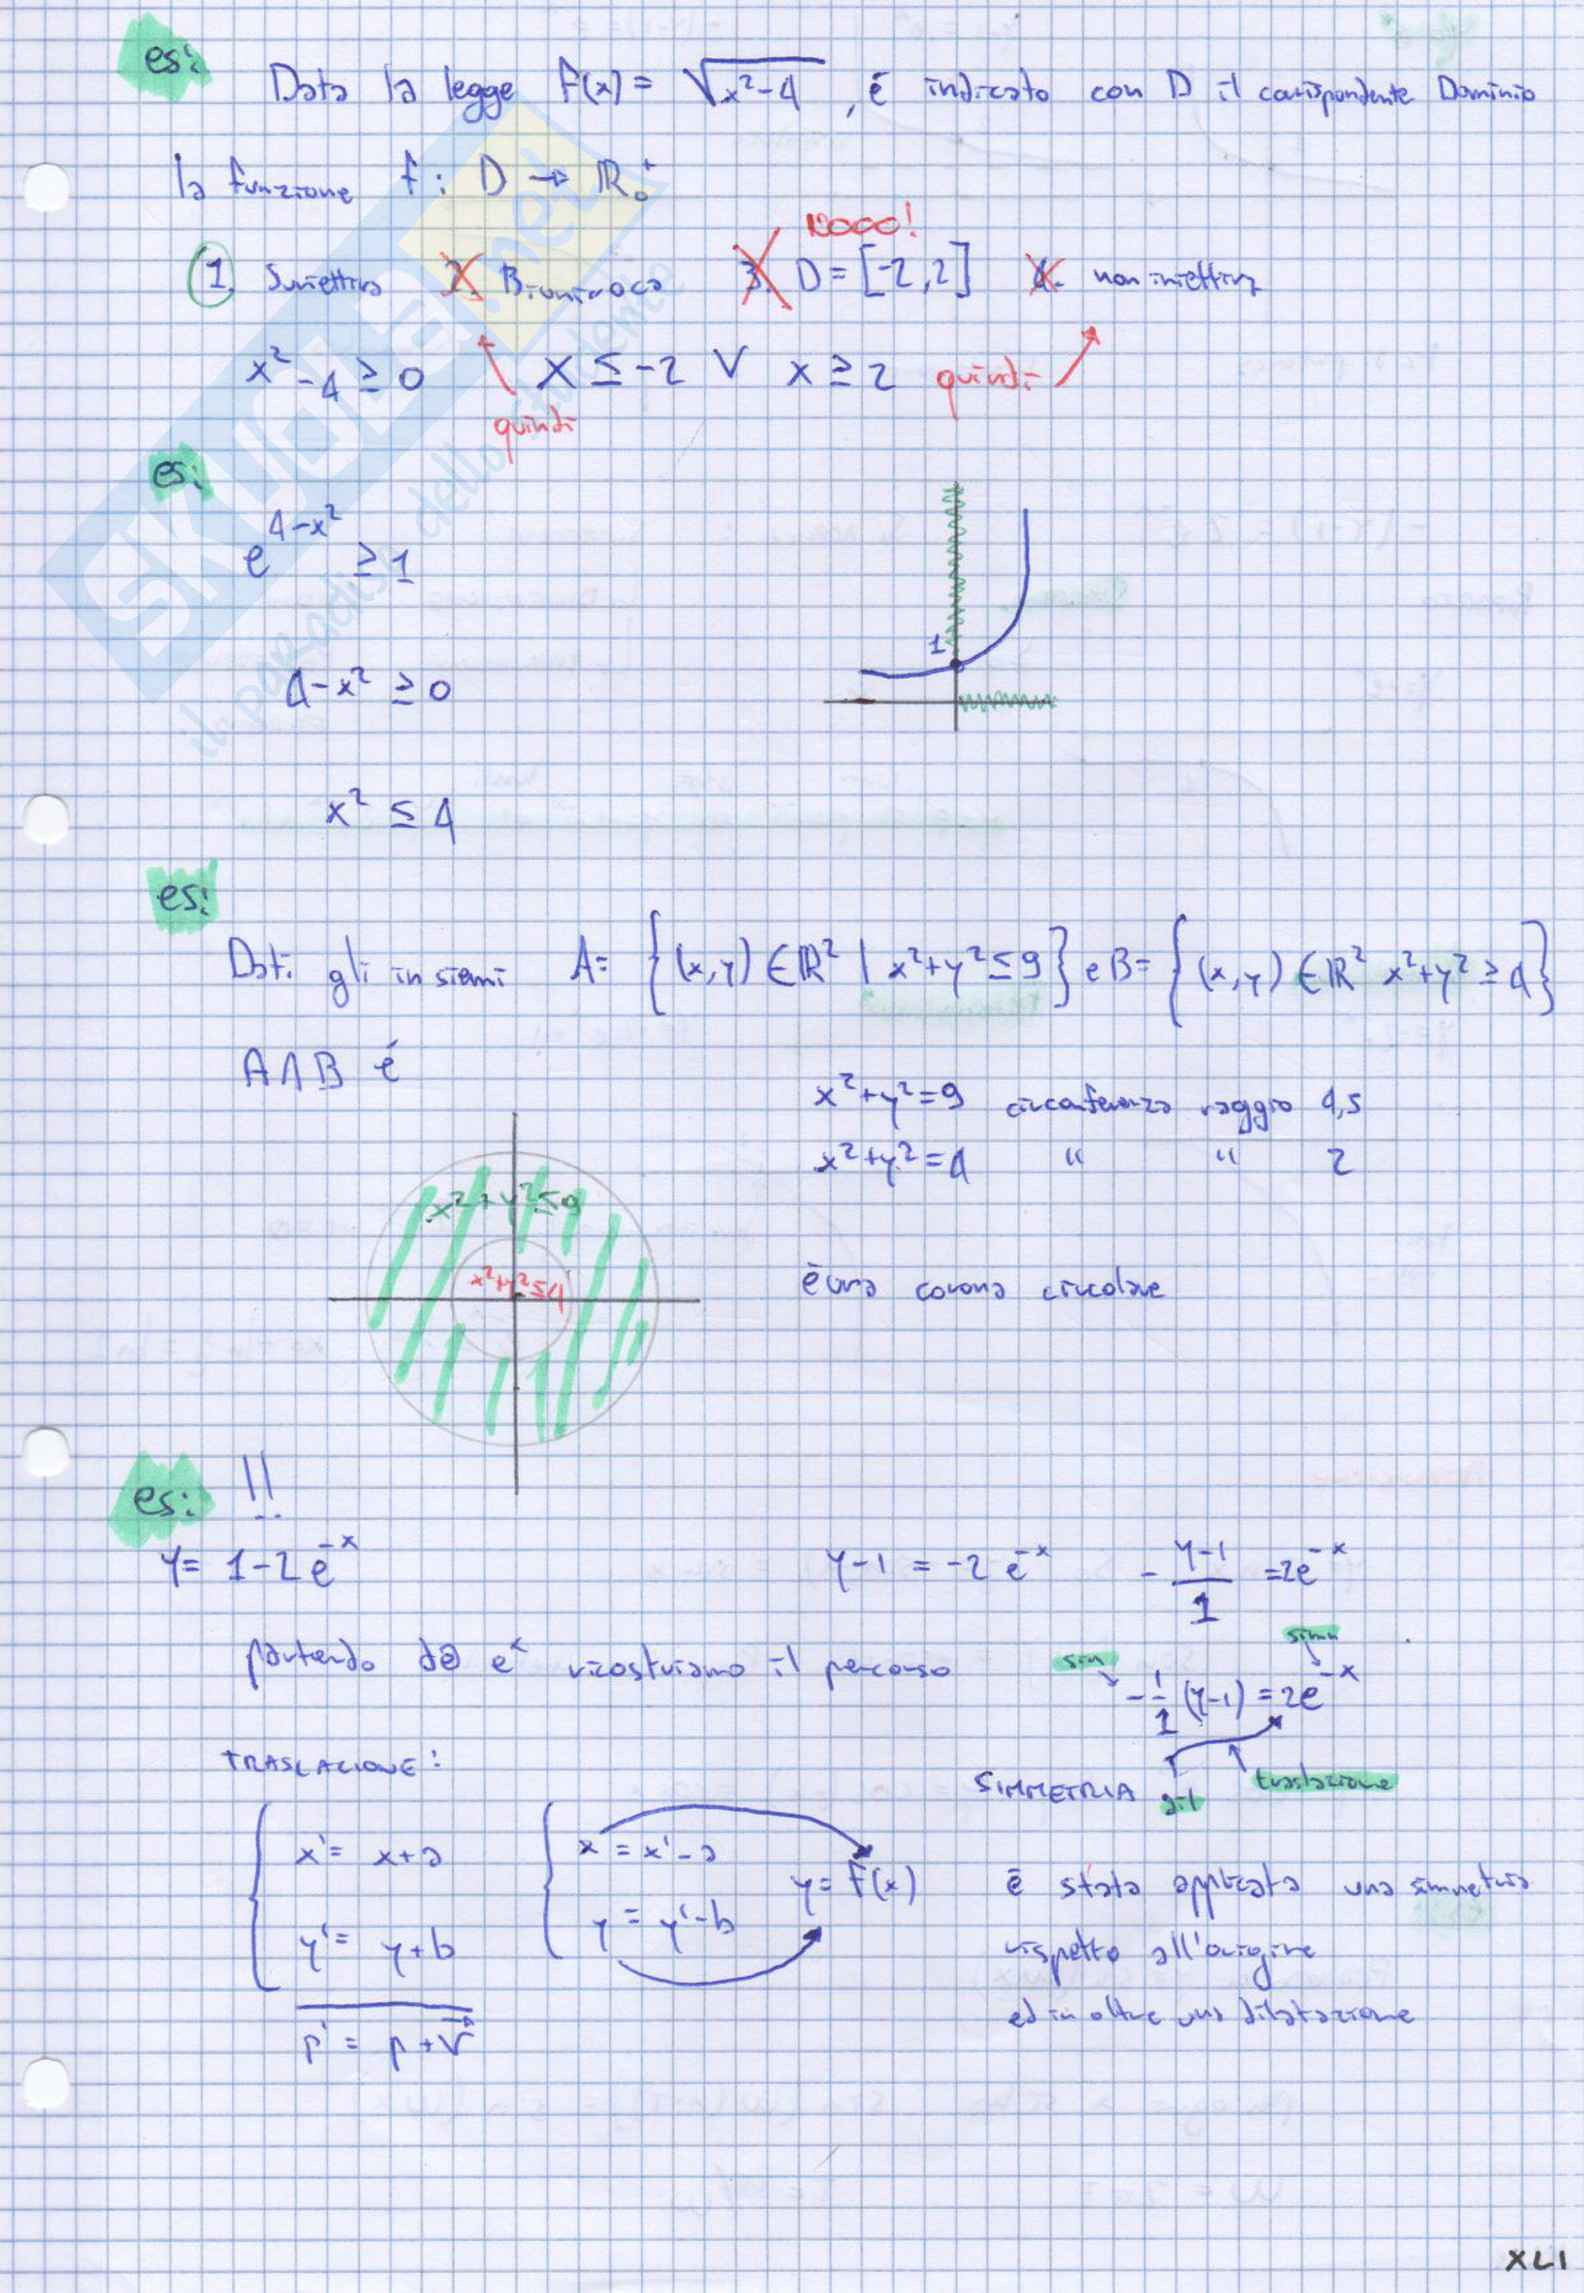 es:
Data la legge f(x) = √x²-4 , è indicato con D il corrispondente Dominio
la funzione f: D → ℝ₀⁺
NOOO!
1. Suriettiva 2. Biunivoca 3. D = [-2,2] 4. non iniettiva
x²-4 ≥ 0 x ≤ -2 ∨ x ≥ 2 quindi
quindi
es:
e^(4-x²) ≥ 1
1
4-x² ≥ 0
x² ≤ 4
es:
Dati gli insiemi A= {(x,y) ∈ ℝ² | x²+y² ≤ 9} e B= {(x,y) ∈ ℝ² x²+y² ≥ 4}
A∩B è
x²+y²=9 circonferenza raggio 4,5
x²+y²=4 " " 2
x²+y² ≤ 9
x²+y² ≤ 4
è una corona circolare
es: !!
y= 1-2e^-x y-1 = -2e^-x - (y-1)/1 = 2e^-x
partendo da e^x ricostruiamo il percorso
sim simm
-1/1 (y-1) = 2e^-x
TRASLAZIONE:
SIMMETRIA dil traslazione
x'= x+a x = x'-a
y= f(x)
y'= y+b y = y'-b
p' = p+v⃗
è stata applicata una simmetria
rispetto all'origine
ed in oltre una dilatazione
XLI
SKUOLA.net
il paradiso dello studente